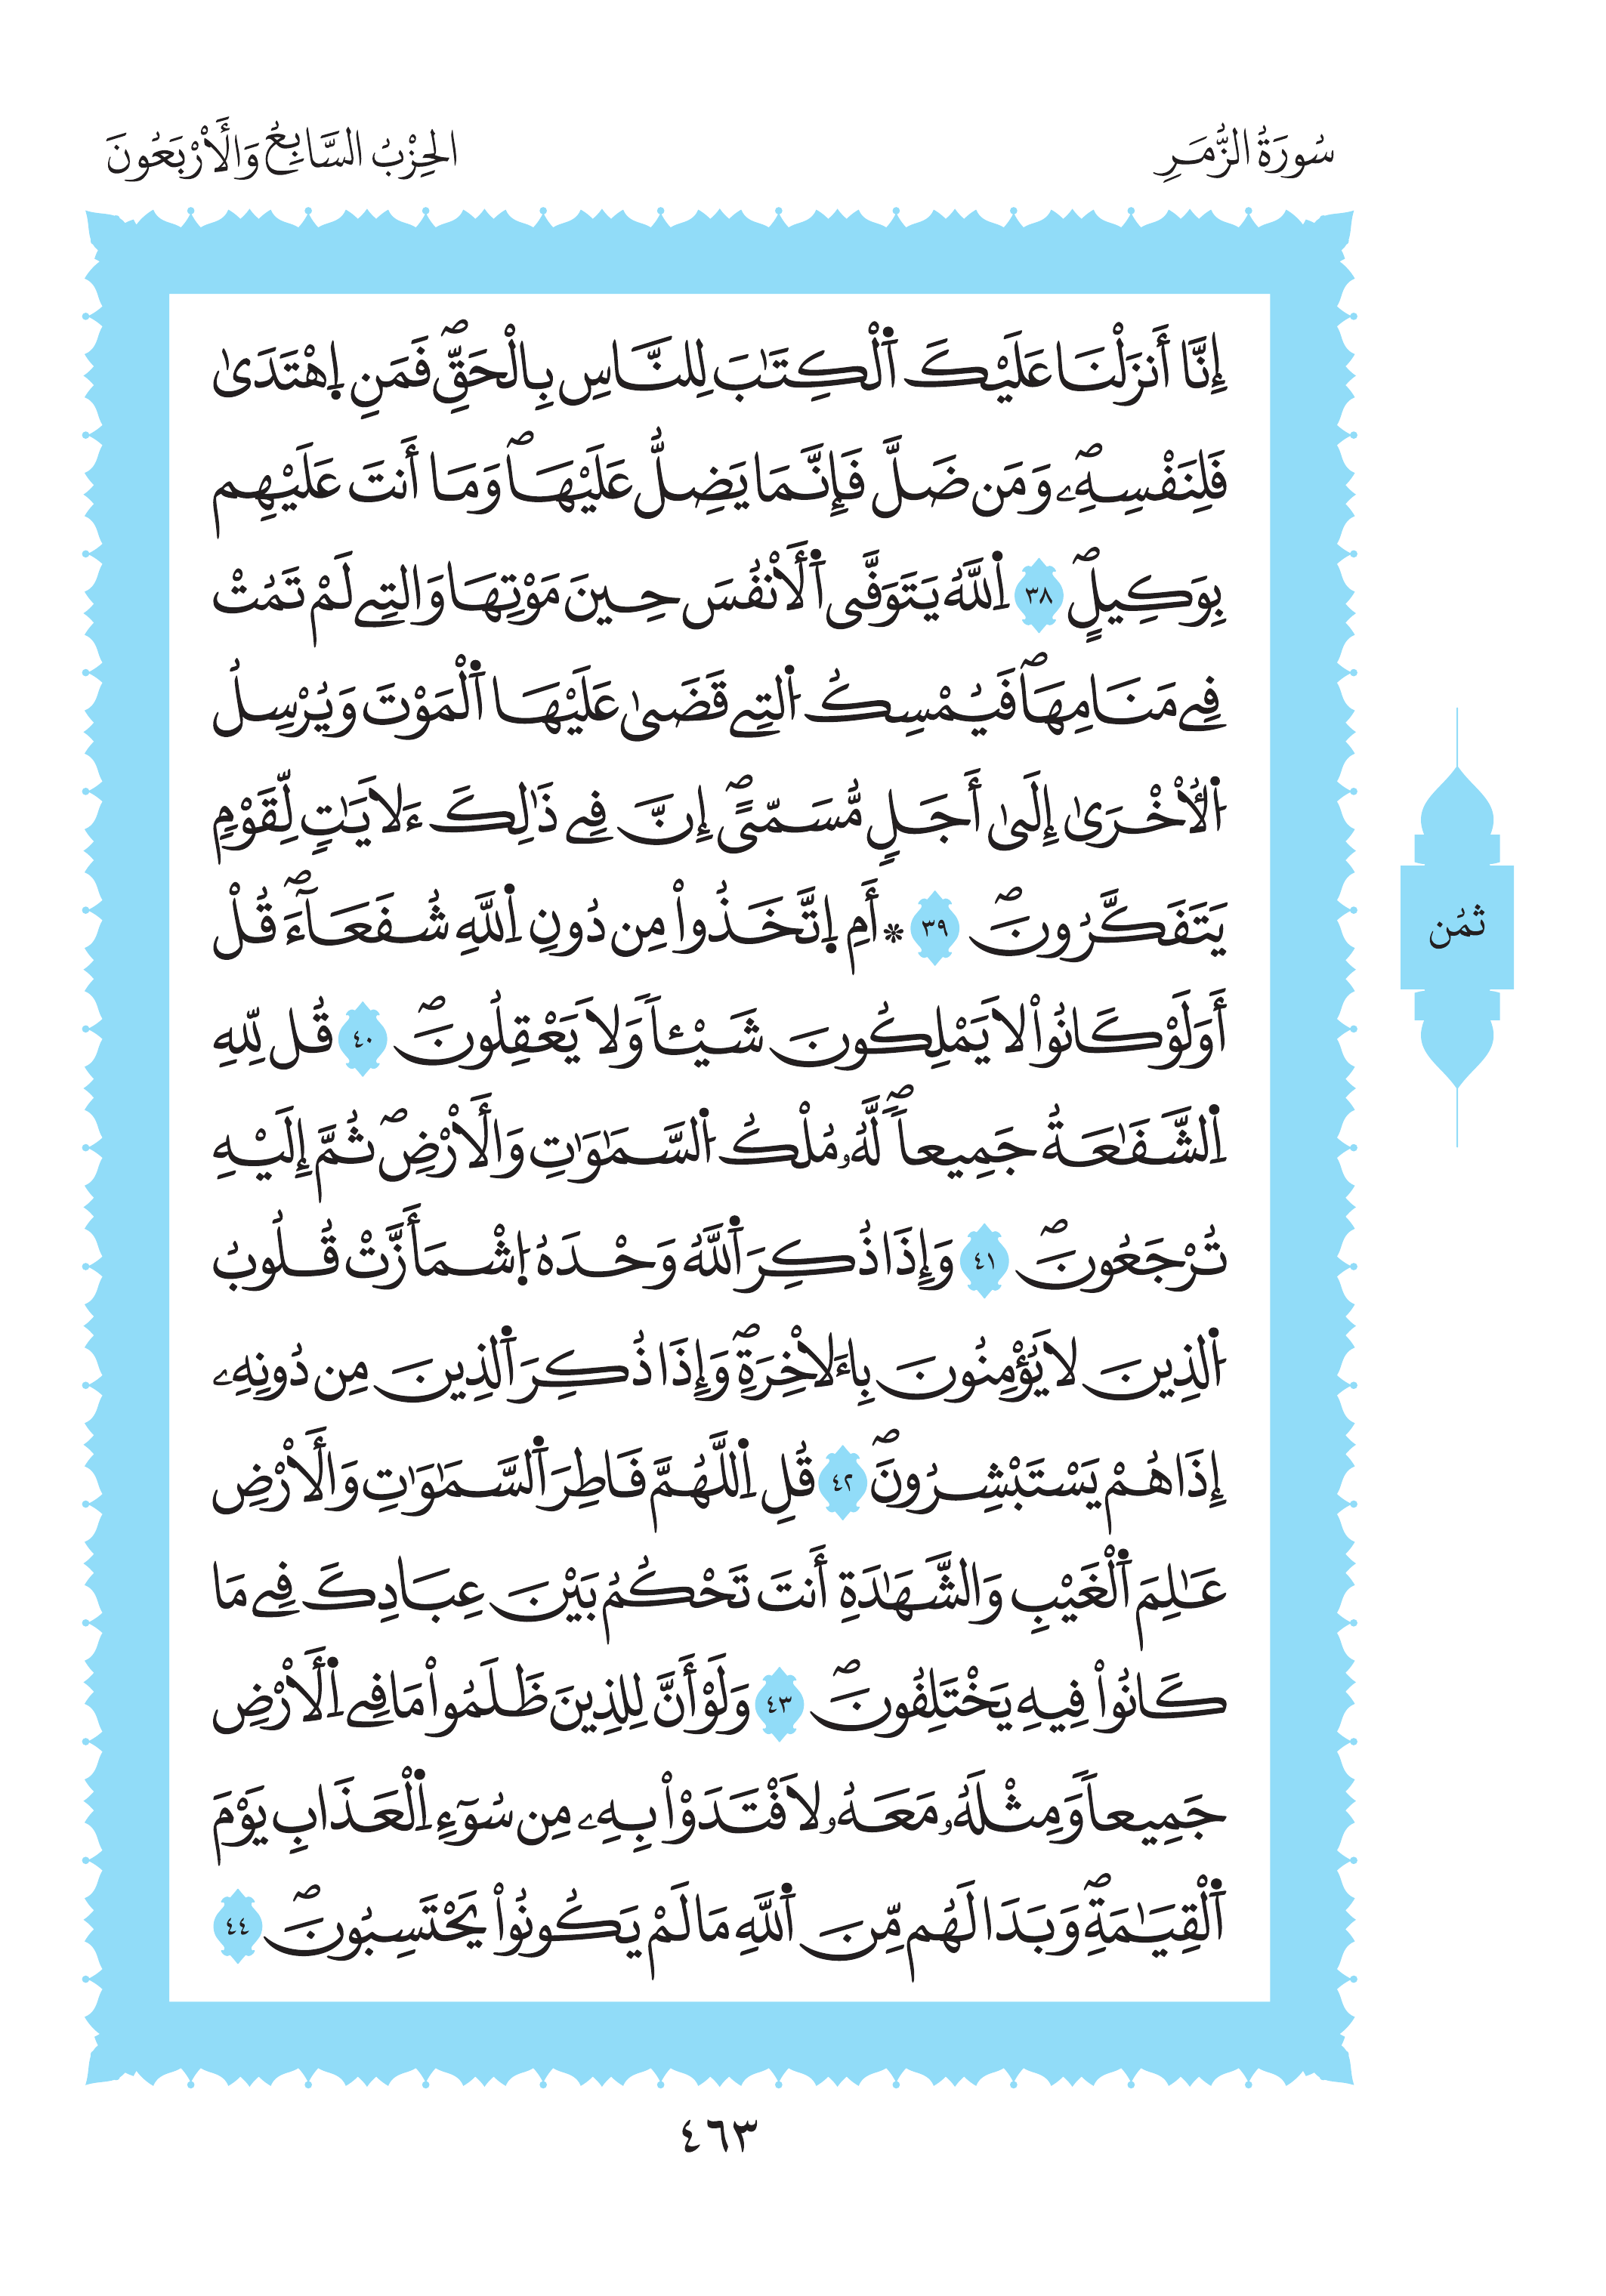 سُورَةُ الزُّمَرِ
الحِزْبُ السَّابِعُ وَالْأَرْبَعُونَ
إِنَّا أَنزَلْنَا عَلَيْكَ اَ۬لْكِتَٰبَ لِلنَّاسِ بِالْحَقِّۖ فَمَنِ اِ۪هْتَدَىٰ
فَلِنَفْسِهِۦۖ وَمَن ضَلَّ فَإِنَّمَا يَضِلُّ عَلَيْهَاۖ وَمَا أَنتَ عَلَيْهِم
بِوَكِيلٍۖ ٣٨ اِ۬للَّهُ يَتَوَفَّى اَ۬لْأَنفُسَ حِينَ مَوْتِهَا وَالتِے لَمْ تَمُتْ
فِے مَنَامِهَاۖ فَيُمْسِكُ اُ۬لتِے قَضَىٰ عَلَيْهَا اَ۬لْمَوْتَ وَيُرْسِلُ
اُ۬لْأُخْرَىٰ إِلَىٰ أَجَلٍ مُّسَمّىًۖ إِنَّ فِے ذَٰلِكَ ءَلَايَٰتٍ لِّقَوْمٍ
يَتَفَكَّرُونَۖ ٣٩ * أَمِ اِ۪تَّخَذُواْ مِن دُونِ اِ۬للَّهِ شُفَعَآءَۖ قُلْ
أَوَلَوْ كَانُواْ لَا يَمْلِكُونَ شَيْـٔاً وَلَا يَعْقِلُونَۖ ٤٠ قُل لِّلهِ
اِ۬لشَّفَٰعَةُ جَمِيعاًۖ لَّهُۥ مُلْكُ اُ۬لسَّمَٰوَٰتِ وَالْأَرْضِۖ ثُمَّ إِلَيْهِ
تُرْجَعُونَۖ ٤١ وَإِذَا ذُكِرَ اَ۬للَّهُ وَحْدَهُ اُ۪شْمَأَزَّتْ قُلُوبُ
اُ۬لذِينَ لَا يُؤْمِنُونَ بِاءَلَاخِرَةِۖ وَإِذَا ذُكِرَ اَ۬لذِينَ مِن دُونِهِۦ
إِذَا هُمْ يَسْتَبْشِرُونَۖ ٤٢ قُلِ اِ۬للَّهُمَّ فَاطِرَ اَ۬لسَّمَٰوَٰتِ وَالْأَرْضِ
عَٰلِمَ اَ۬لْغَيْبِ وَالشَّهَٰدَةِ أَنتَ تَحْكُمُ بَيْنَ عِبَادِكَ فِے مَا
كَانُواْ فِيهِ يَخْتَلِفُونَۖ ٤٣ وَلَوْ أَنَّ لِلذِينَ ظَلَمُواْ مَا فِے اِ۬لْأَرْضِ
جَمِيعاً وَمِثْلَهُۥ مَعَهُۥ لَافْتَدَوْاْ بِهِۦ مِن سُوٓءِ اِ۬لْعَذَابِ يَوْمَ
اَ۬لْقِيَٰمَةِۖ وَبَدَا لَهُم مِّنَ اَ۬للَّهِ مَا لَمْ يَكُونُواْ يَحْتَسِبُونَۖ ٤٤
ثُمُن
٤٦٣